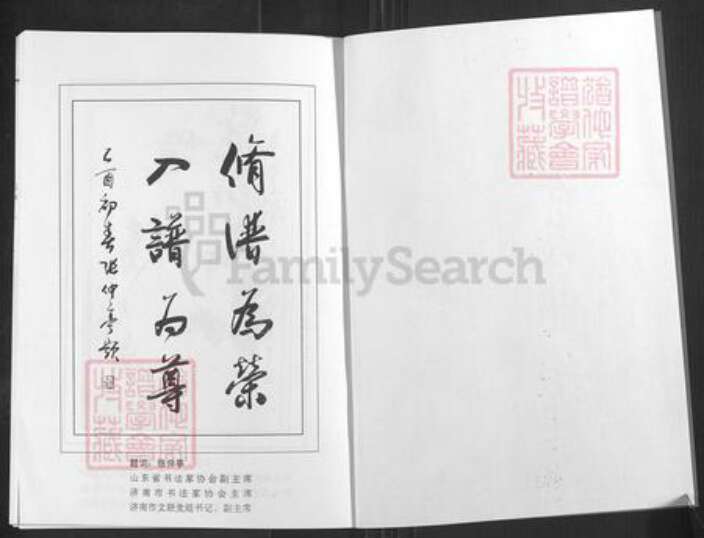 脩譜為榮
入譜为尊
乙酉初春张仲亭题
题词：张仲亭
山东省书法家协会副主席
济南市书法家协会主席
济南市文联党组书记、副主席
FamilySearch
谱学会
收藏
谱学会
收藏